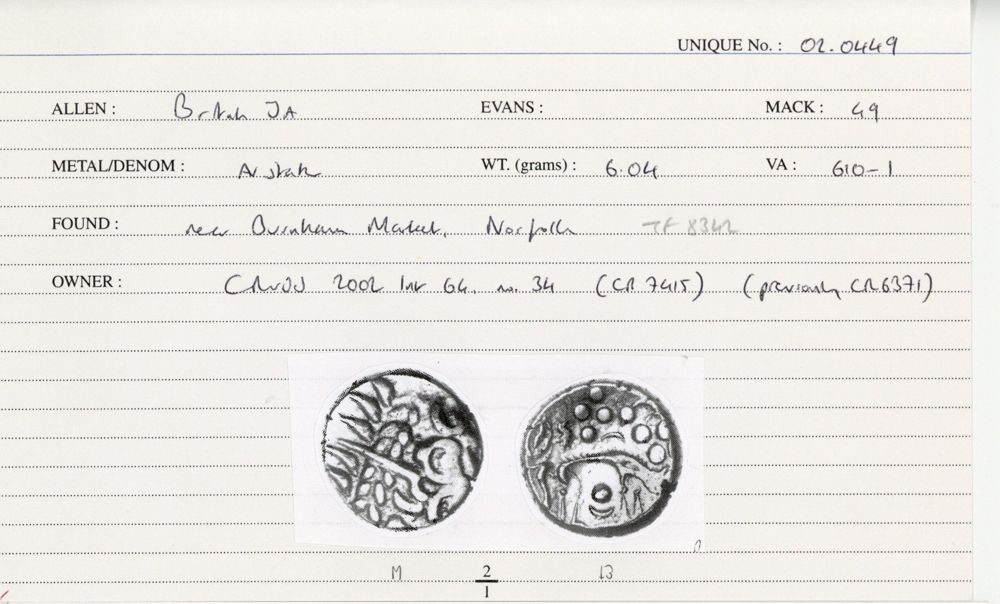 UNIQUE No. : 02.0449
ALLEN : British JA EVANS : MACK : 49
METAL/DENOM : AV stater WT. (grams) : 6.04 VA : 610-1
FOUND : near Burnham Market, Norfolk TF 8342
OWNER : 2002 64, no. 34 (CR 7415) (previously CR6371)
M 2/1 13